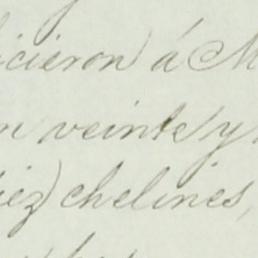 icieron á M
n veinte y
iez) chelines,